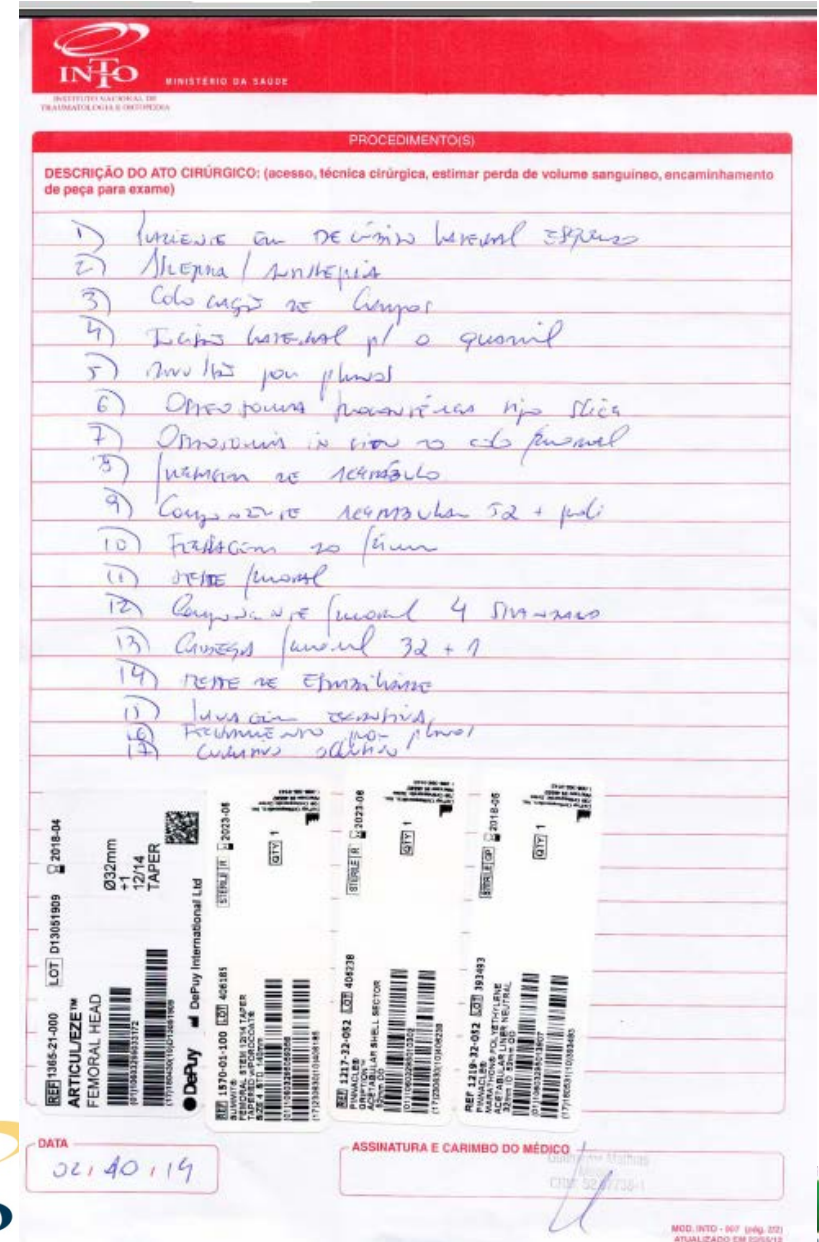 INTO
MINISTÉRIO DA SAÚDE
INSTITUTO NACIONAL DE
TRAUMATOLOGIA E ORTOPEDIA
PROCEDIMENTO(S)
DESCRIÇÃO DO ATO CIRÚRGICO: (acesso, técnica cirúrgica, estimar perda de volume sanguíneo, encaminhamento
de peça para exame)
1) Paciente em decúbito lateral esquerdo
2) Assepsia / antissepsia
3) Colocação de campos
4) Incisão lateral p/ o quadril
5) por planos
6) Osteotomia trocantérica tipo
7) Osteotomia in situ do colo femoral
8) Fresagem de acetábulo
9) Componente acetabular 52 + poli
10) Fresagem do fêmur
11) Teste femoral
12) Componente femoral 4 standard
13) Cabeça femoral 32 + 1
14) Teste de estabilidade
15) Lavagem exaustiva
16) Fechamento por planos
17) Curativo oclusivo
REF 1365-21-000 LOT D13051909 2018-04
ARTICUL/EZE™
FEMORAL HEAD
Ø32mm
+1
12/14
TAPER
DePuy DePuy International Ltd
REF 1570-01-100 LOT 406185 STERILE R 2023-06
SUMMIT®
FEMORAL STEM 12/14 TAPER
TAPERED W/POROCOAT®
QTY 1
REF 1217-32-052 LOT 406238 STERILE R 2023-06
PINNACLE®
GRIPTION™
ACETABULAR SHELL SECTOR
52mm OD
QTY 1
REF 1219-32-052 LOT 393493 STERILE GP 2018-05
PINNACLE®
MARATHON® POLYETHYLENE
ACETABULAR LINER NEUTRAL
32mm ID 52mm OD
QTY 1
DATA
02, 10, 14
ASSINATURA E CARIMBO DO MÉDICO
MOD. INTO - 007 (pág. 2/2)